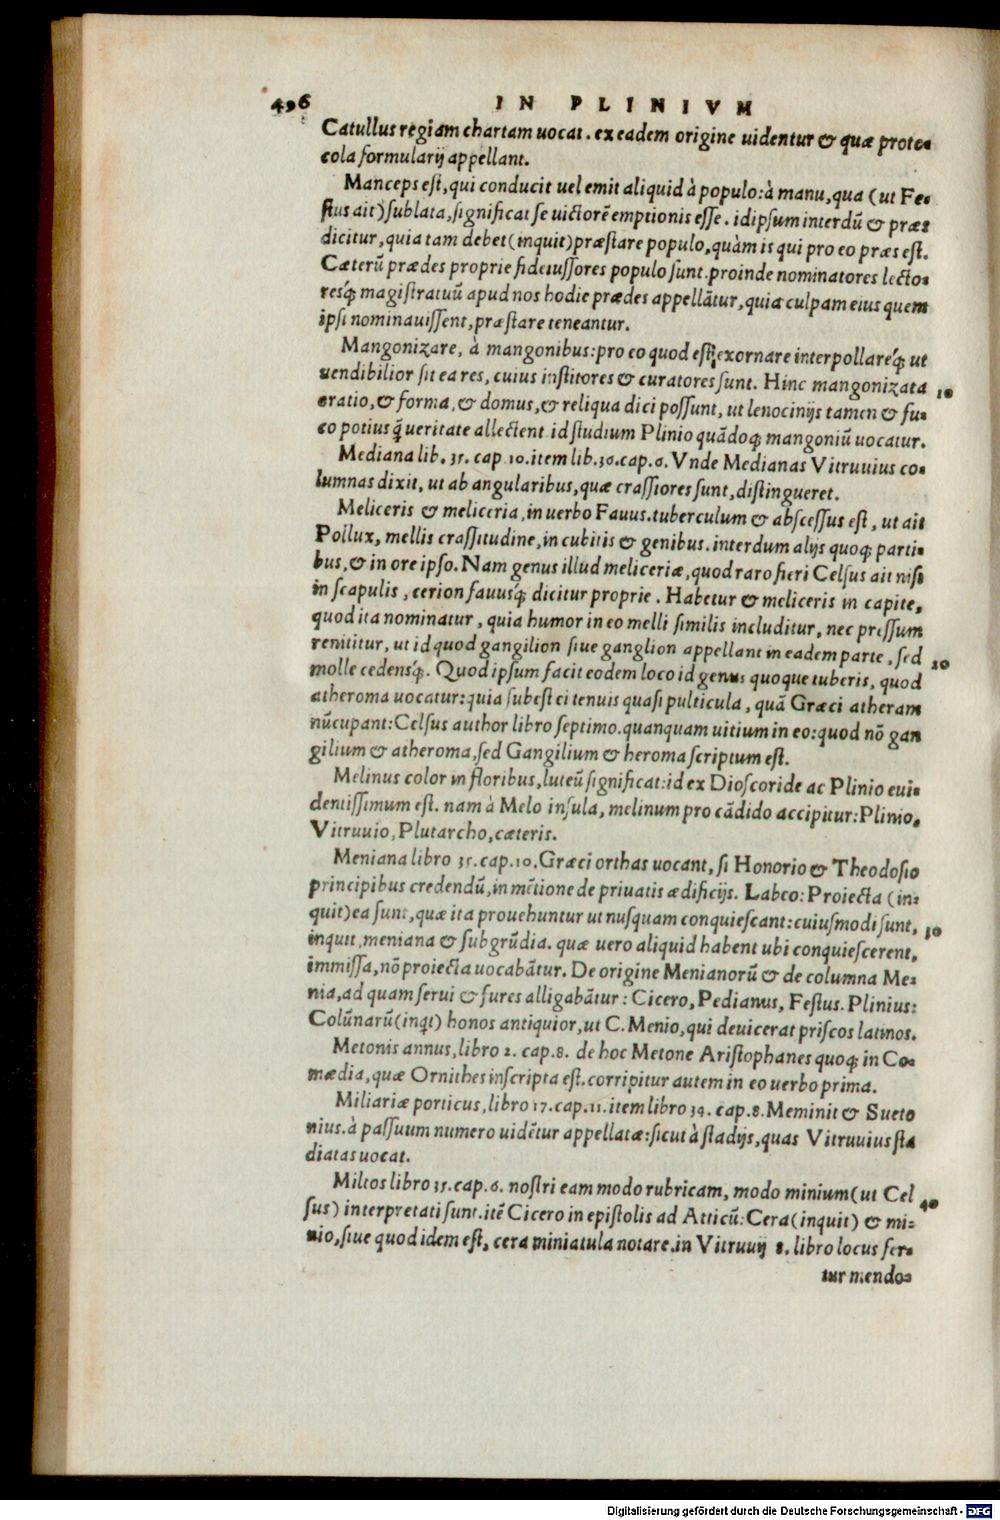 496 IN PLINIVM
Catullus regiam chartam uocat. ex eadem origine uidentur & quæ proto-
cola formularij appellant.
Manceps est, qui conducit uel emit aliquid à populo: à manu, qua (ut Fe-
stus ait) sublata, significat se uictorē emptionis esse. id ipsum interdū & præs
dicitur, quia tam debet (inquit) præstare populo, quàm is qui pro eo præs est.
Cæterū prædes proprie fideiussores populo sunt. proinde nominatores lecto-
resq́; magistratuū apud nos hodie prædes appellātur, quia culpam eius quem
ipsi nominauissent, præstare teneantur.
Mangonizare, à mangonibus: pro eo quod est, exornare interpollareq́; ut
uendibilior sit ea res, cuius institores & curatores sunt. Hinc mangonizata 10
oratio, & forma, & domus, & reliqua dici possunt, ut lenocinijs tamen & fu-
co potius q̄ ueritate allectent. id studium Plinio quādoq; mangoniū uocatur.
Mediana lib. 35. cap. 10. item lib. 36. cap. 6. Vnde Medianas Vitruuius co-
lumnas dixit, ut ab angularibus, quæ crassiores sunt, distingueret.
Meliceris & meliceria, in uerbo Fauus. tuberculum & abscessus est, ut ait
Pollux, mellis crassitudine, in cubitis & genibus. interdum alijs quoq; parti-
bus, & in ore ipso. Nam genus illud meliceriæ, quod raro fieri Celsus ait nisi
in scapulis, cerion fauusq́; dicitur proprie. Habetur & meliceris in capite,
quod ita nominatur, quia humor in eo melli similis includitur, nec pressum
renititur, ut id quod gangilion siue ganglion appellant in eadem parte, sed 20
molle cedensq́;. Quod ipsum facit eodem loco id genus quoque tuberis, quod
atheroma uocatur: quia subest ei tenuis quasi pulticula, quā Græci atheram
nūcupant: Celsus author libro septimo. quanquam uitium in eo: quod nō gan
gilium & atheroma, sed Gangilium & heroma scriptum est.
Melinus color in floribus, luteū significat: id ex Dioscoride ac Plinio eui-
dentissimum est. nam à Melo insula, melinum pro cādido accipitur: Plinio,
Vitruuio, Plutarcho, cæteris.
Meniana libro 35. cap. 10. Græci orthas uocant, si Honorio & Theodosio
principibus credendū, in mētione de priuatis ædificijs. Labeo: Proiecta (in-
quit) ea sunt, quæ ita prouehuntur ut nusquam conquiescant: cuiusmodi sunt, 30
inquit, meniana & subgrūdia. quæ uero aliquid habent ubi conquiescerent,
immissa, nō proiecta uocabātur. De origine Menianorū & de columna Me-
nia, ad quam serui & fures alligabātur: Cicero, Pedianus, Festus. Plinius:
Colūnarū (inq̄t) honos antiquior, ut C. Menio, qui deuicerat priscos latinos.
Metonis annus, libro 2. cap. 8. de hoc Metone Aristophanes quoq; in Co-
mœdia, quæ Ornithes inscripta est. corripitur autem in eo uerbo prima.
Miliariæ porticus, libro 17. cap. 11. item libro 34. cap. 8. Meminit & Sueto
nius. à passuum numero uidētur appellatæ: sicut à stadijs, quas Vitruuius sta
diatas uocat.
Miltos libro 35. cap. 6. nostri eam modo rubricam, modo minium (ut Cel 40
sus) interpretati sunt. itē Cicero in epistolis ad Atticū: Cera (inquit) & mi-
nio, siue quod idem est, cera miniatula notare. in Vitruuij 8. libro locus fer-
tur mendo-
Digitalisierung gefördert durch die Deutsche Forschungsgemeinschaft - DFG